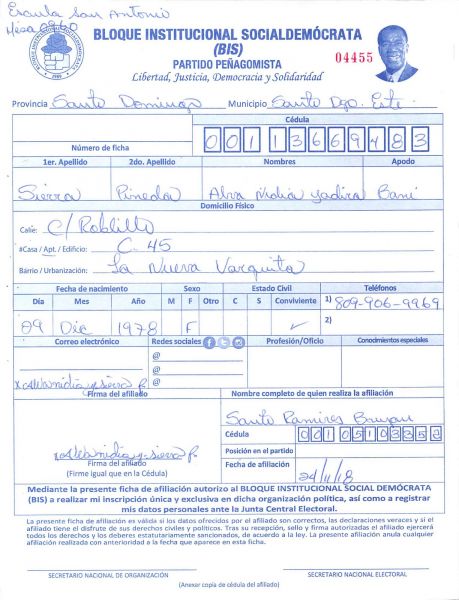 Escuela San Antonio
Mesa 0260
BLOQUE INSTITUCIONAL SOCIALDEMÓCRATA
(BIS)
PARTIDO PEÑAGOMISTA
Libertad, Justicia, Democracia y Solidaridad
04455
Provincia Santo Domingo Municipio Santo Dgo. Este.
Cédula
Número de ficha 001 1366948 3
1er. Apellido 2do. Apellido Nombres Apodo
Sierra Pineda Alva Nidia Yadira Bani
Domicilio Físico
Calle: C/ Roblillo
#Casa / Apt. / Edificio: C. 45
Barrio / Urbanización: La Nueva Barquita
Fecha de nacimiento Sexo Estado Civil Teléfonos
Día Mes Año M F Otro C S Conviviente 1) 809-906-9969
09 Dic 1978 F ✓ 2)
Correo electrónico Redes sociales Profesión/Oficio Conocimientos especiales
@
@
@
Firma del afiliado Nombre completo de quien realiza la afiliación
Santo Ramires
Cédula 001 0510335 2
Posición en el partido
Firma del afiliado
(Firma igual que en la Cédula)
Fecha de afiliación 24/11/18
Mediante la presente ficha de afiliación autorizo al BLOQUE INSTITUCIONAL SOCIAL DEMÓCRATA
(BIS) a realizar mi inscripción única y exclusiva en dicha organización política, así como a registrar
mis datos personales ante la Junta Central Electoral.
La presente ficha de afiliación es válida si los datos ofrecidos por el afiliado son correctos, las declaraciones veraces y si el
afiliado tiene el disfrute de sus derechos civiles y políticos. Tras su recepción, sello y firma autorizados el afiliado ejercerá
todos los derechos y los deberes estatutariamente sancionados, de acuerdo a la ley. La presente afiliación anula cualquier
afiliación realizada con anterioridad a la fecha que aparece en esta ficha.
SECRETARIO NACIONAL DE ORGANIZACIÓN SECRETARIO NACIONAL ELECTORAL
(Anexar copia de cédula del afiliado)